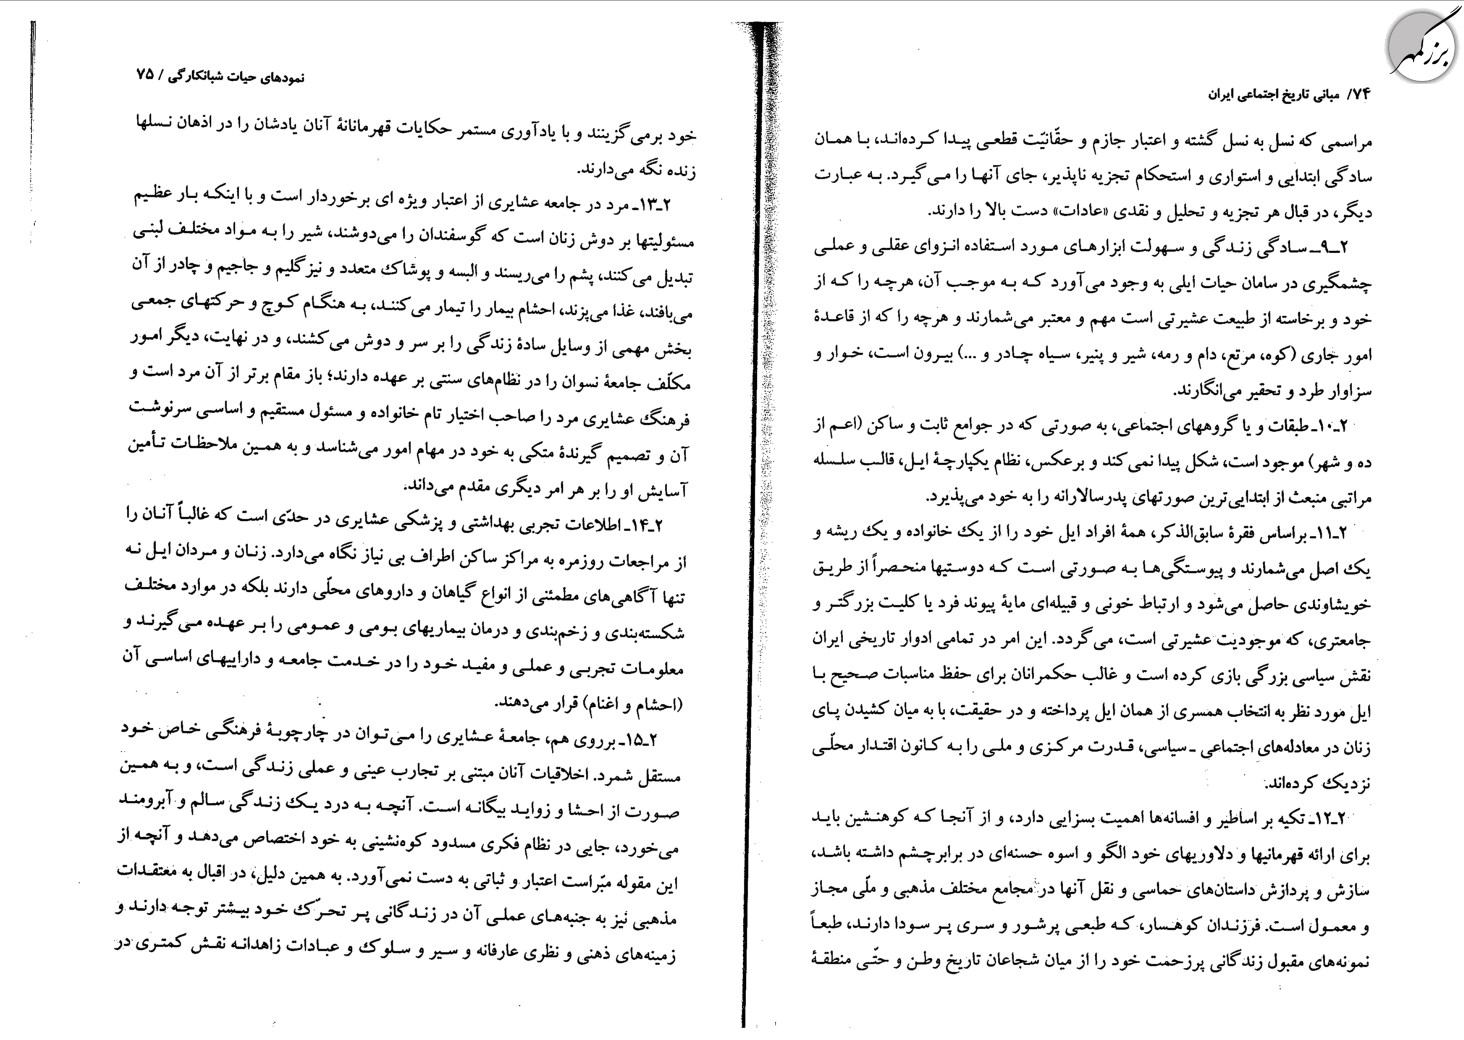 بزرگمهر
۷۴/ مبانی تاریخ اجتماعی ایران
مراسمی که نسل به نسل گشته و اعتبار جازم و حقّانیّت قطعی پیدا کرده‌اند، با همان
سادگی ابتدایی و استواری و استحکام تجزیه ناپذیر، جای آنها را می‌گیرد. به عبارت
دیگر، در قبال هر تجزیه و تحلیل و نقدی «عادات» دست بالا را دارند.
۲ـ۹ـ سادگی زندگی و سهولت ابزارهای مورد استفاده انزوای عقلی و عملی
چشمگیری در سامان حیات ایلی به وجود می‌آورد که به موجب آن، هرچه را که از
خود و برخاسته از طبیعت عشیرتی است مهم و معتبر می‌شمارند و هرچه را که از قاعدهٔ
امور جاری (کوه، مرتع، دام و رمه، شیر و پنیر، سیاه چادر و ...) بیرون است، خوار و
سزاوار طرد و تحقیر می‌انگارند.
۲ـ۱۰ـ طبقات و یا گروههای اجتماعی، به صورتی که در جوامع ثابت و ساکن (اعم از
ده و شهر) موجود است، شکل پیدا نمی‌کند و برعکس، نظام یکپارچهٔ ایل، قالب سلسله
مراتبی منبعث از ابتدایی‌ترین صورتهای پدرسالارانه را به خود می‌پذیرد.
۲ـ۱۱ـ براساس فقرهٔ سابق‌الذکر، همهٔ افراد ایل خود را از یک خانواده و یک ریشه و
یک اصل می‌شمارند و پیوستگی‌ها به صورتی است که دوستیها منحصراً از طریق
خویشاوندی حاصل می‌شود و ارتباط خونی و قبیله‌ای مایهٔ پیوند فرد با کلیت بزرگتر و
جامعتری، که موجودیت عشیرتی است، می‌گردد. این امر در تمامی ادوار تاریخی ایران
نقش سیاسی بزرگی بازی کرده است و غالب حکمرانان برای حفظ مناسبات صحیح با
ایل مورد نظر به انتخاب همسری از همان ایل پرداخته و در حقیقت، با به میان کشیدن پای
زنان در معادله‌های اجتماعی ـ سیاسی، قدرت مرکزی و ملی را به کانون اقتدار محلّی
نزدیک کرده‌اند.
۲ـ۱۲ـ تکیه بر اساطیر و افسانه‌ها اهمیت بسزایی دارد، و از آنجا که کوهنشین باید
برای ارائه قهرمانیها و دلاوریهای خود الگو و اسوه حسنه‌ای در برابر چشم داشته باشد،
سازش و پردازش داستان‌های حماسی و نقل آنها در مجامع مختلف مذهبی و ملّی مجاز
و معمول است. فرزندان کوهسار، که طبعی پرشور و سری پر سودا دارند، طبعاً
نمونه‌های مقبول زندگانی پرزحمت خود را از میان شجاعان تاریخ وطن و حتّی منطقهٔ
نمودهای حیات شبانکارگی / ۷۵
خود برمی‌گزینند و با یادآوری مستمر حکایات قهرمانانهٔ آنان یادشان را در اذهان نسلها
زنده نگه می‌دارند.
۲ـ۱۳ـ مرد در جامعه عشایری از اعتبار ویژه ای برخوردار است و با اینکه بار عظیم
مسئولیتها بر دوش زنان است که گوسفندان را می‌دوشند، شیر را به مواد مختلف لبنی
تبدیل می‌کنند، پشم را می‌ریسند و البسه و پوشاک متعدد و نیز گلیم و جاجیم و چادر از آن
می‌بافند، غذا می‌پزند، احشام بیمار را تیمار می‌کنند، به هنگام کوچ و حرکتهای جمعی
بخش مهمی از وسایل سادهٔ زندگی را بر سر و دوش می‌کشند، و در نهایت، دیگر امور
مکلّف جامعهٔ نسوان را در نظام‌های سنتی بر عهده دارند؛ باز مقام برتر از آن مرد است و
فرهنگ عشایری مرد را صاحب اختیار تام خانواده و مسئول مستقیم و اساسی سرنوشت
آن و تصمیم گیرندهٔ متکی به خود در مهام امور می‌شناسد و به همین ملاحظات تأمین
آسایش او را بر هر امر دیگری مقدم می‌داند.
۲ـ۱۴ـ اطلاعات تجربی بهداشتی و پزشکی عشایری در حدّی است که غالباً آنان را
از مراجعات روزمره به مراکز ساکن اطراف بی نیاز نگاه می‌دارد. زنان و مردان ایل نه
تنها آگاهی‌های مطمئنی از انواع گیاهان و داروهای محلّی دارند بلکه در موارد مختلف
شکسته‌بندی و زخم‌بندی و درمان بیماریهای بومی و عمومی را بر عهده می‌گیرند و
معلومات تجربی و عملی و مفید خود را در خدمت جامعه و داراییهای اساسی آن
(احشام و اغنام) قرار می‌دهند.
۲ـ۱۵ـ برروی هم، جامعهٔ عشایری را می‌توان در چارچوبهٔ فرهنگی خاص خود
مستقل شمرد. اخلاقیات آنان مبتنی بر تجارب عینی و عملی زندگی است، و به همین
صورت از احشا و زواید بیگانه است. آنچه به درد یک زندگی سالم و آبرومند
می‌خورد، جایی در نظام فکری مسدود کوه‌نشینی به خود اختصاص می‌دهد و آنچه از
این مقوله مبّراست اعتبار و ثباتی به دست نمی‌آورد. به همین دلیل، در اقبال به معتقدات
مذهبی نیز به جنبه‌های عملی آن در زندگانی پر تحرّک خود بیشتر توجه دارند و
زمینه‌های ذهنی و نظری عارفانه و سیر و سلوک و عبادات زاهدانه نقش کمتری در